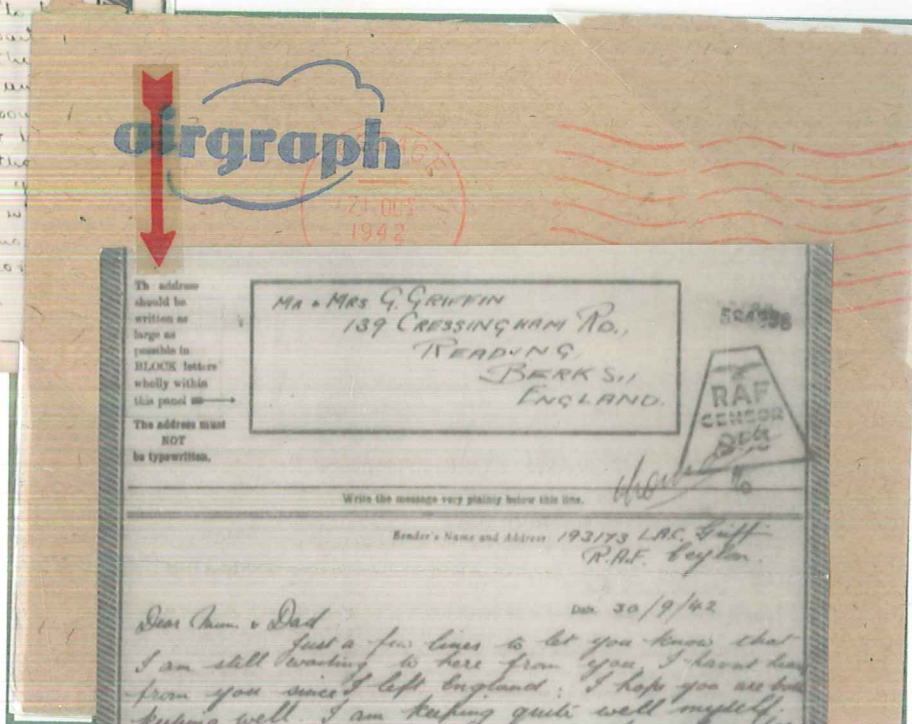 airgraph
21 OCT
1942
Th address
should be
written as
large as
possible in
BLOCK letters
wholly within
this panel
The address must
NOT
be typewritten.
MR & MRS G. GRIFFIN
139 CRESSINGHAM RD.,
READING,
BERKS.,
ENGLAND.
RAF
CENSOR
Write the message very plainly below this line.
Sender's Name and Address 193173 LAC. Griffin
R.A.F. Ceylon.
Date 30/9/42
Dear Mum & Dad
Just a few lines to let you know that
I am still waiting to here from you, I havnt
from you since I left England; I hope you are
keeping well. I am keeping quite well myself